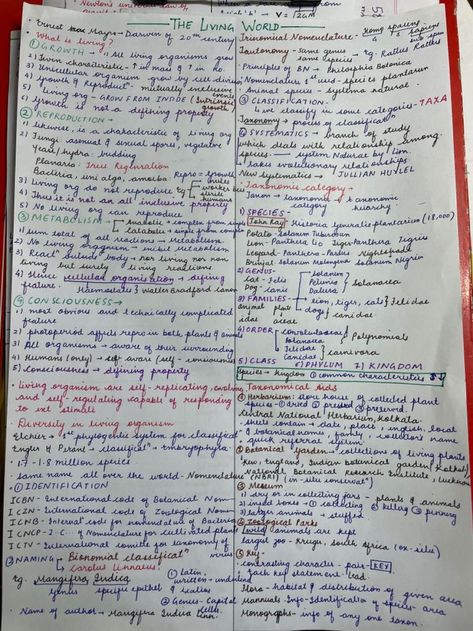 THE LIVING WORLD
Ernst Mayr - Darwin of 20th century
What is living?
① GROWTH → All living organisms grow
3) Multicellular organism grow by cell division
4) Growth & Reproduction mutually exclusive events
5) Living org - GROW FROM INSIDE (Intrinsic growth)
6) Growth is not a defining property
② REPRODUCTION →
1) Likewise, is a characteristic of living org
2) Fungi - asexual & sexual spores, vegetative
Yeast / hydra : budding
Planaria : True Regeneration
Bacteria, uni algo, amoeba : Repro = Growth
3) living org do not reproduce eg mule
worker bee
human
4) Thus it is not an all inclusive property
5) No living organism can reproduce
③ METABOLISM → Anabolic = complex from simple
Catabolic = simple from complex
1) Sum total of all reactions → Metabolism
2) No living organism → exclude Metabolism
3) Reactn outside body → nor living nor non
living but surely living reactions
4) Hence cellular organisation → defining
feature
④ CONSCIOUSNESS →
1) most obvious and technically complicated
feature
2) photoperiod affects repro in both plants & animals
3) All organisms → aware of their surrounding
4) Humans (only) → self-aware (self-consciousness)
5) Consciousness → defining property
• living organism are self-replicating, evolving
and self-regulating capable of responding
to ext stimuli
• Diversity in living organism
Eichler → 1st phylogenetic system for classification
• 1.7 - 1.8 million species
• Same name all over the world - Nomenclature
① IDENTIFICATION
ICBN - International code of Botanical Nom
ICZN - International code of Zoological Nom
ICNB - Internat code for nomenclature of Bacteria
ICNCP - I.C. of Nomenclature for cultivated plants
ICTV - International committe for taxonomy of virus
② NAMING → Binomial classificatn
→ Carolus Linnaeus
eg. Mangifera Indica
genus specific epithet
① Latin, written → underlined & Italics
② Genus - Capital
• Name of author → Mangifera Indica Linn.
Trinomial Nomenclature - Homo sapiens
Tautonomy - same genus
same species
eg. Rattus Rattus
• Principles of BN → Philosophia Botanica
• Nomenclature 1st used - species plantarum
• Animal species - Systema naturae
③ CLASSIFICATION
↳ we classify in some categories - TAXA
Taxonomy → process of classificatn
④ SYSTEMATICS → branch of study
which deals with relationship among
species → system naturae by Linn.
• takes evolutionary relationships
New Systematics → JULLIAN HUXLEY
• Taxonomic category →
Taxon → taxonomic category → taxonomic hierarchy
1) SPECIES →
John Ray Historia generalis plantarum (18,000)
Potato - Solanum Tuberosum
Lion - Panthera Leo Tiger - Panthera Tigris
Leopard - Panthera Pardus Nightshade
Brinjal - Solanum Melongena Solanum Nigrum
2) GENUS -
Cat - Felis
Dog - Canis
Solanum
Petunia
Datura
Solanacea
3) FAMILIES →
animal idae
plant aceae
lion, tiger, cat Felidae
dog canidae
4) ORDER
convolvulaceae
Solanacea
Polymonials
Felidae
Canidae
carnivora
5) CLASS 6) PHYLUM 7) KINGDOM
Species → Kingdom ① common characteristics ↓
Taxonomical Aids
① Herbarium: store house of collected plant
species - ① dried ② pressed ③ preserved.
Central National Herbarium, Kolkata.
• sheet contain → date, place, english, local
& botanical names, family, collectors name
• quick referral system
② Botanical Garden → collections of living plants
Kew, england, Indian botanical garden (Kolkata)
National Botanical Research Institute, Lucknow
(NBRI) (in-situ conserva")
③ Museum
2) insects boxes → ① collecting ② killing ③ pinning
3) larger animals → stuffed
④ Zoological Parks
wild animals are kept
largest zoo - Kruger, South Africa (ex-situ)
⑤ Key -
• contrasting character - pair - KEY
• Each key statement - lead.
Flora - habitat & distribution of given area
Mannuals Info - Identificatn of species - area
Monographs - info of any one taxon.